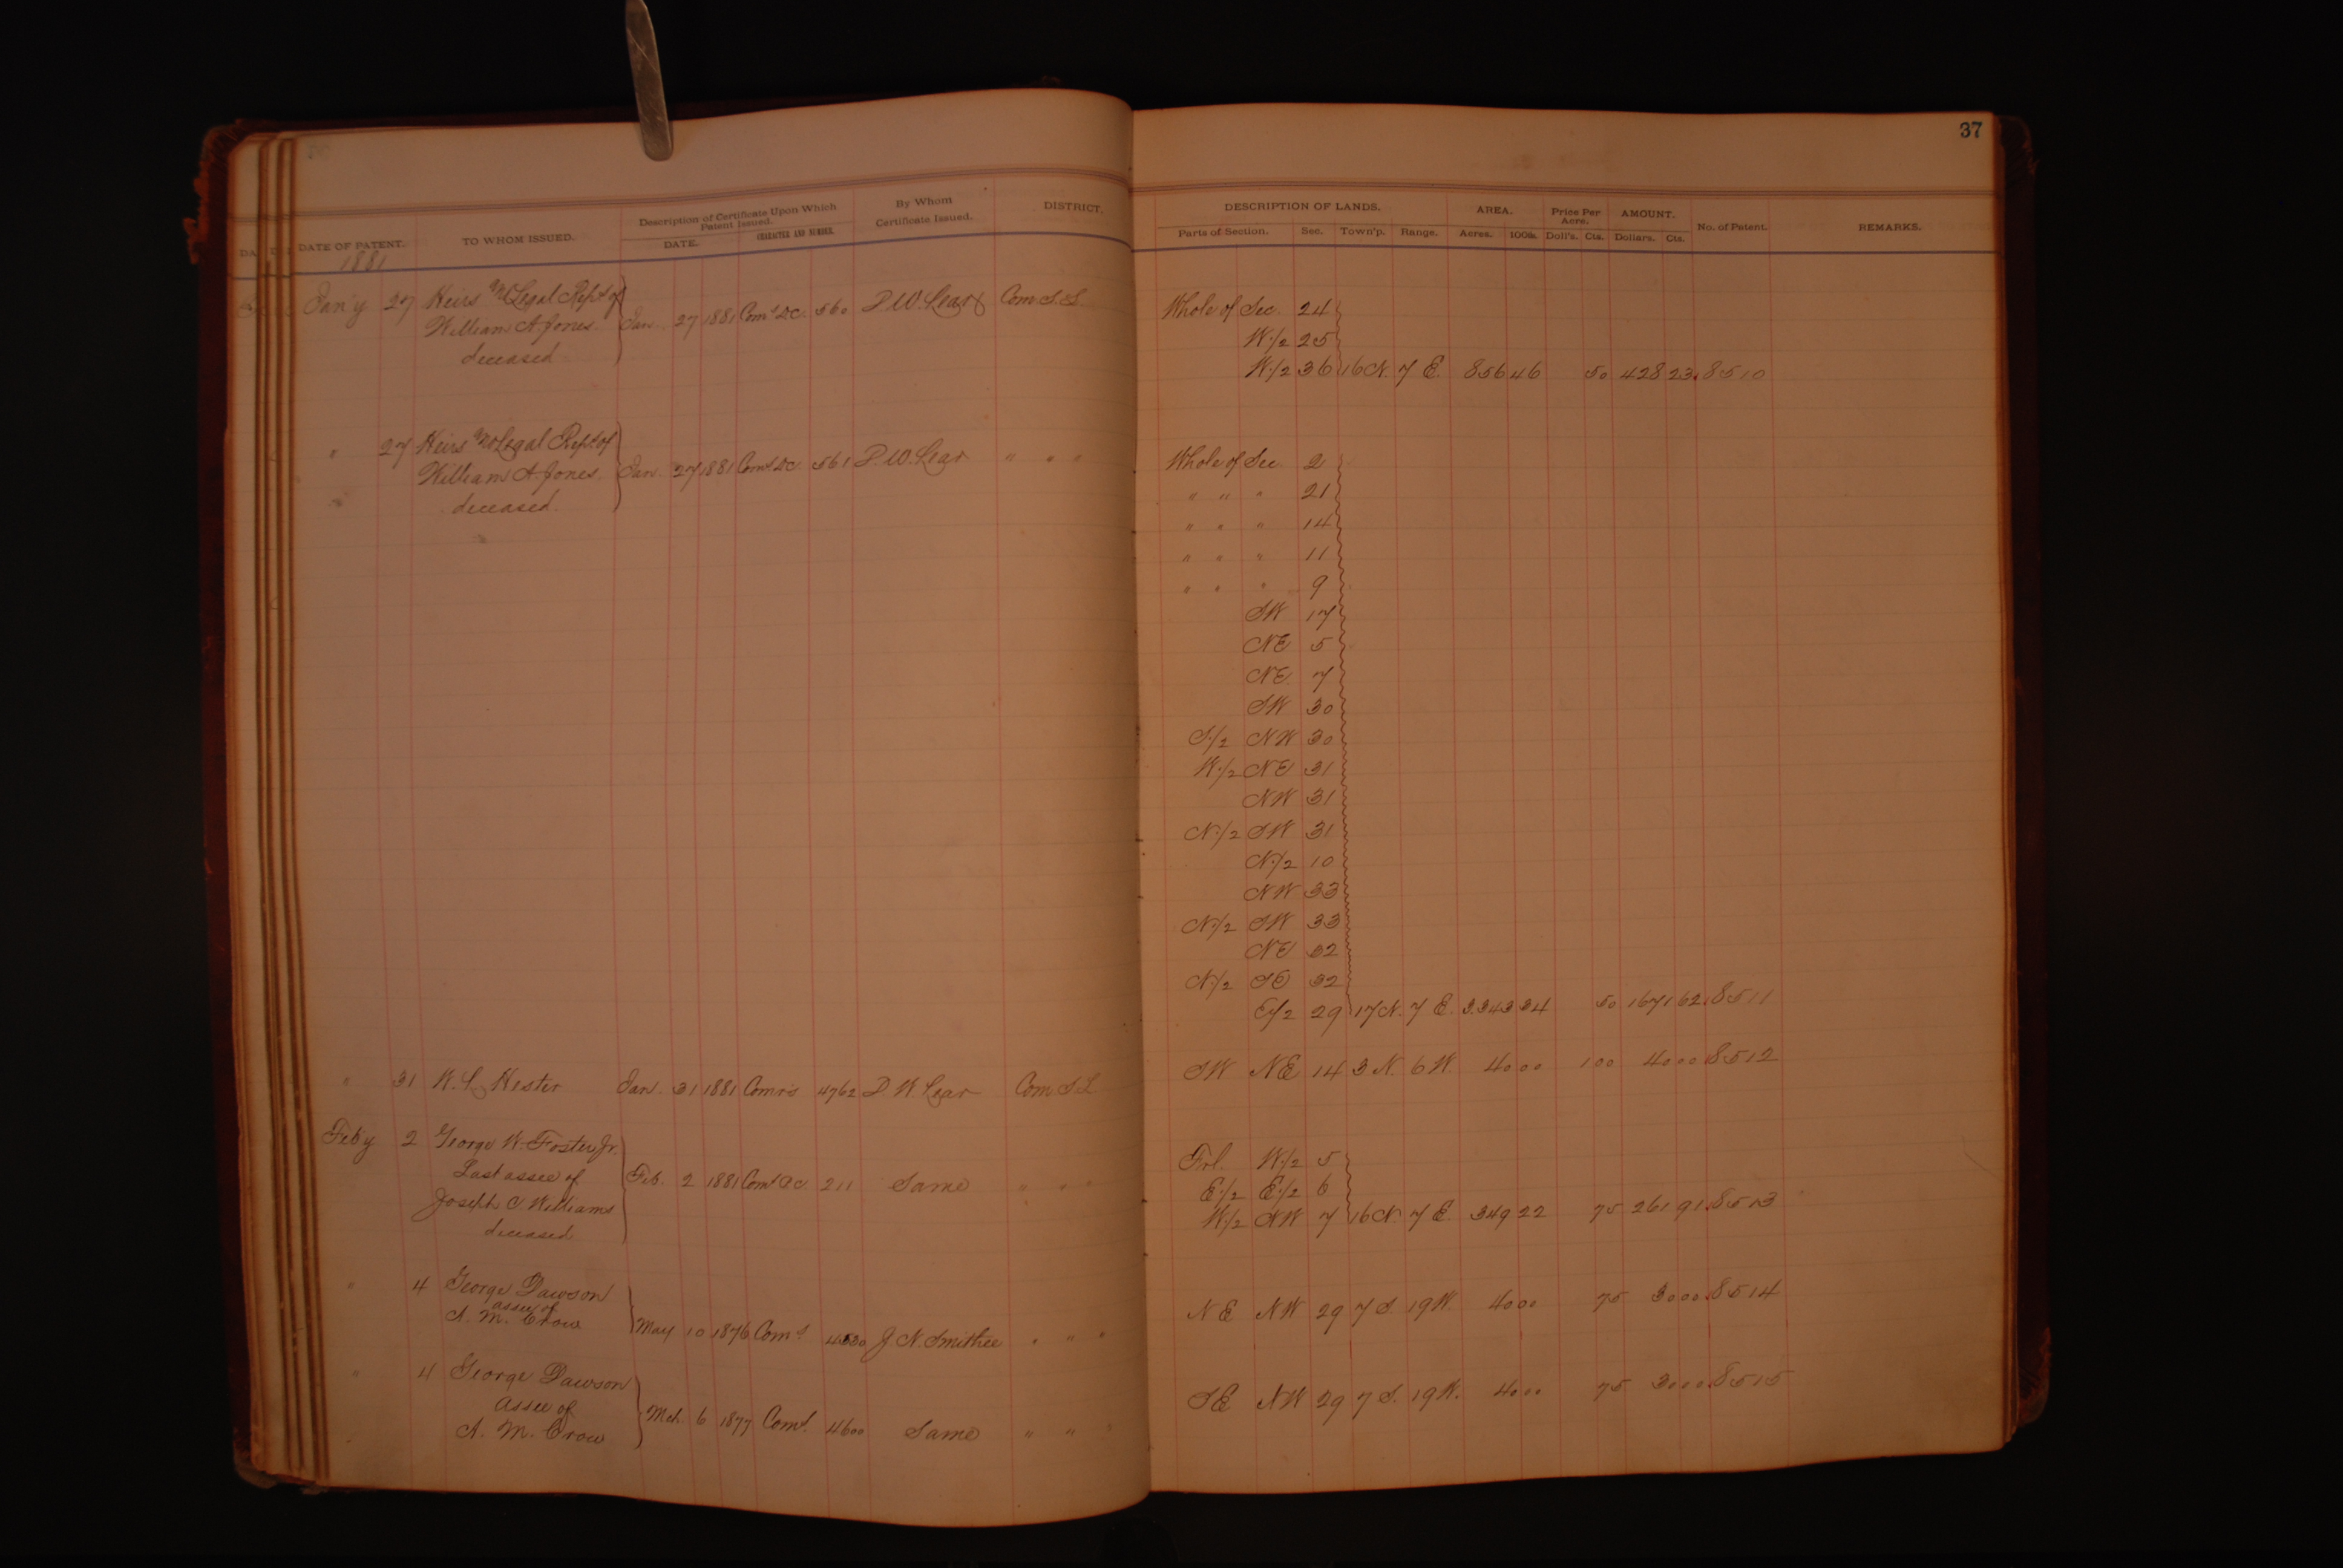 37
DATE OF PATENT. TO WHOM ISSUED. Description of Certificate Upon Which Patent Issued. DATE. CHARACTER AND NUMBER. By Whom Certificate Issued. DISTRICT. DESCRIPTION OF LANDS. Parts of Section. Sec. Town'p. Range. AREA. Acres. 100th. Price Per Acre. Doll's. Cts. AMOUNT. Dollars. Cts. No. of Patent. REMARKS.
1881
Jan'y 27 Heirs and Legal Rept of Whole of Sec. 24
William A. Jones Jan. 27 1881 Com's DC 560 D. W. Lear Com S. L W. 1/2 25
deceased W. 1/2 36 16 N. 7 E. 856 46 50 428 23 8510
" 27 Heirs and Legal Rept of Whole of Sec. 2
William A. Jones Jan. 27 1881 Com's DC 561 D. W. Lear " " " " " " 21
deceased. " " " 14
" " " 11
" " " 9
SW 17
NE 5
NE. 7
SW 30
S. 1/2 NW 30
W. 1/2 NE 31
NW 31
N. 1/2 SW 31
N. 1/2 10
NW 33
N. 1/2 SW 33
NE 32
N. 1/2 SE 32
E. 1/2 29 17 N. 7 E. 3.343 34 50 1671 62 8511
" 31 Hester Jan. 31 1881 Comrs 4762 D. W. Lear Com S. L SW NE 14 3 N. 6 W. 40 00 1 00 40 00 8512
Feb'y 2 George W. Foster Jr. Frl. W. 1/2 5
Last assee of Feb. 2 1881 Com's 211 Same " " " E. 1/2 E. 1/2 6
Joseph C. Williams W. 1/2 NW 7 16 N. 7 E. 349 22 75 261 91 8513
deceased
" 4 George Dawson
assee of
A. M. Crow May 10 1876 Com's J. N. Smithee " " " NE NW 29 7 S. 19 W. 40 00 75 30 00 8514
" 4 George Dawson
assee of
A. M. Crow Mch. 6 1877 Com's. 4600 Same " " " SE NW 29 7 S. 19 W. 40 00 75 30 00 8515